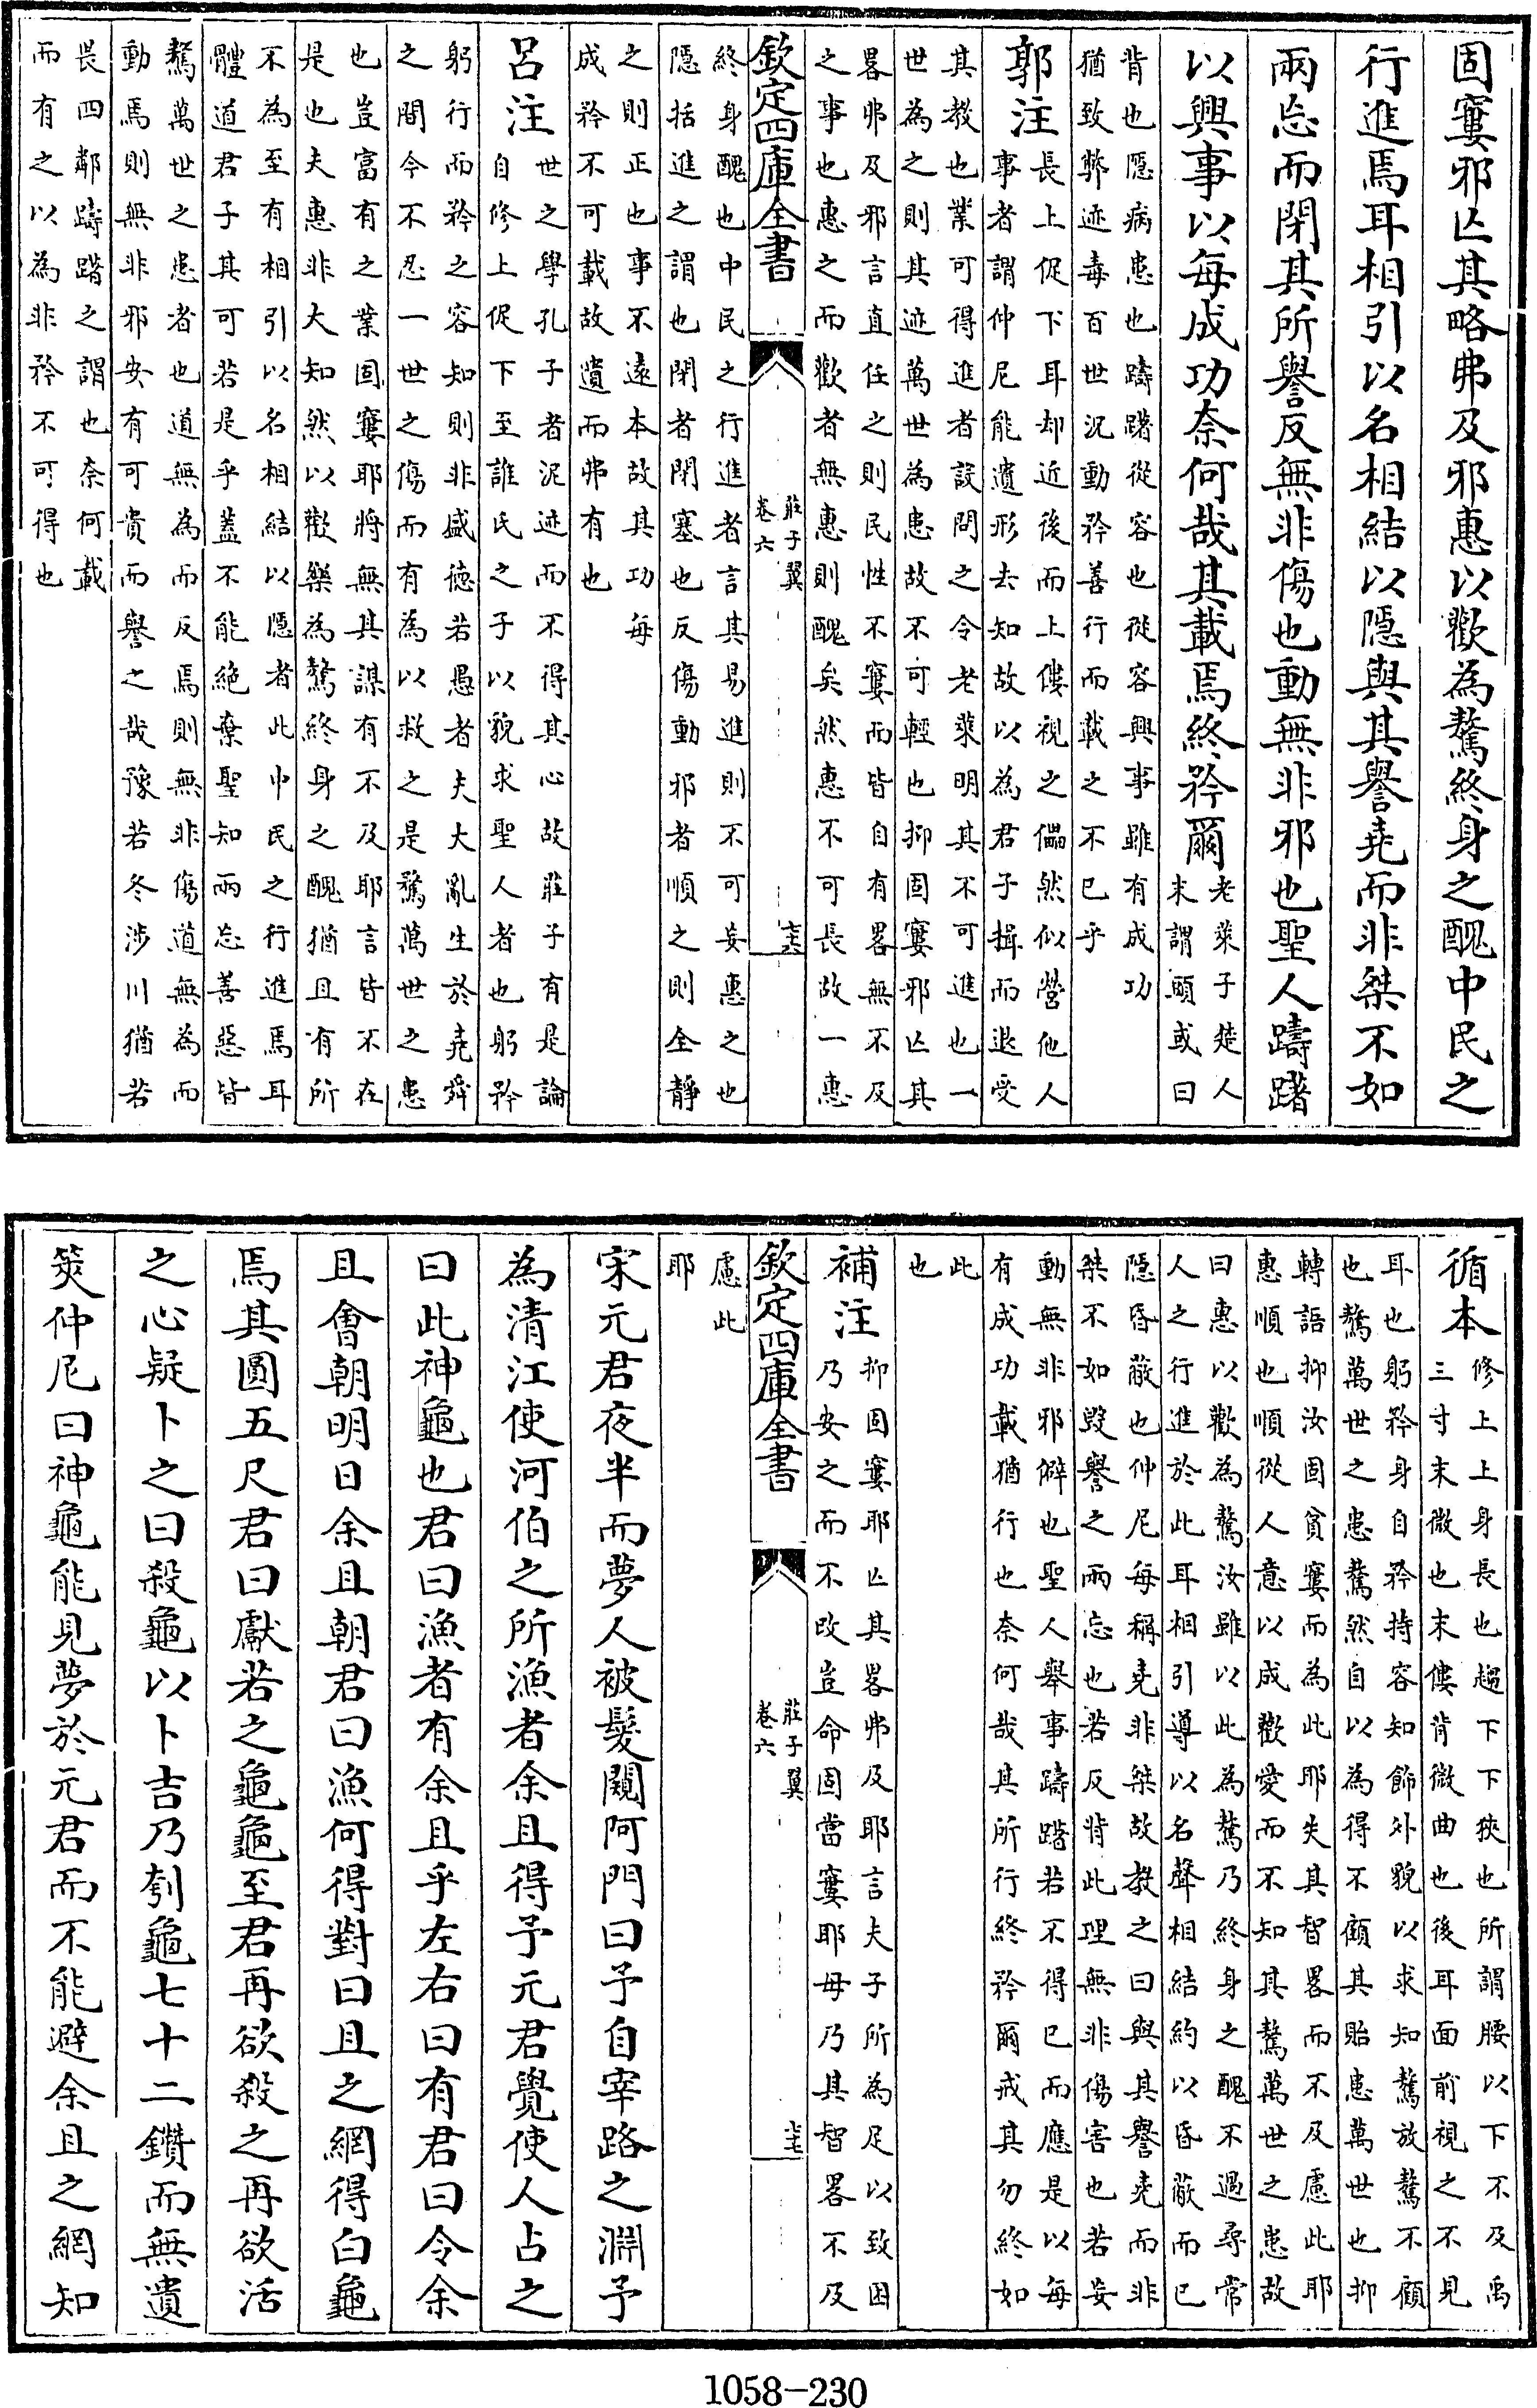 固窶邪亾其略弗及邪惠以歡為驁終身之醜中民之
行進焉耳相引以名相結以隱與其譽堯而非桀不如
兩忘而閉其所譽反無非傷也動無非邪也聖人躊躇
以興事以每成功奈何哉其載焉終矜爾老萊子楚人
末謂頤或曰
背也隱病患也躊躇從容也從容興事雖有成功
猶致弊迹毒百世況動矜善行而載之不已乎
郭注長上促下耳却近後而上僂視之儡然似營他人
事者謂仲尼能遺形去知故以為君子揖而退受
其教也業可得進者設問之令老萊明其不可進也一
世為之則其迹萬世為患故不可輕也抑固窶邪亾其
畧弗及邪言直任之則民性不窶而皆自有畧無不及
之事也惠之而歡者無惠則醜矣然惠不可長故一惠
欽定四庫全書
莊子翼
卷六
終身醜也中民之行進者言其易進則不可妄惠之也
隱括進之謂也閉者閉塞也反傷動邪者順之則全靜
之則正也事不遠本故其功每
成矜不可載故遺而弗有也
呂注世之學孔子者泥迹而不得其心故莊子有是論
自修上促下至誰氏之子以貌求聖人者也躬矜
躬行而矜之容知則非盛德若愚者夫大亂生於堯舜
之間今不忍一世之傷而有為以救之是驁萬世之患
也豈富有之業固窶耶將無其謀有不及耶言皆不在
是也夫惠非大知然以歡樂為驁終身之醜猶且有所
不為至有相引以名相結以隱者此中民之行進焉耳
體道君子其可若是乎蓋不能絕棄聖知兩忘善惡皆
驁萬世之患者也道無為而反焉則無非傷道無為而
動焉則無非邪安有可貴而譽之哉豫若冬涉川猶若
畏四鄰躊躇之謂也奈何載
而有之以為非矜不可得也
循本修上上身長也趨下下狹也所謂腰以下不及禹
三寸末微也末僂背微曲也後耳面前視之不見
耳也躬矜身自矜持容知飾外貌以求知驁放驁不顧
也驁萬世之患驁然自以為得不顧其貽患萬世也抑
轉語抑汝固貧窶而為此耶失其智畧而不及慮此耶
惠順也順從人意以成歡愛而不知其驁萬世之患故
曰惠以歡為驁汝雖以此為驁乃終身之醜不過尋常
人之行進於此耳相引導以名聲相結約以昏蔽而已
隱昏蔽也仲尼每稱堯非桀故教之曰與其譽堯而非
桀不如毀譽之兩忘也若反背此理無非傷害也若妄
動無非邪僻也聖人舉事躊躇若不得已而應是以每
有成功載猶行也奈何哉其所行終矜爾戒其勿終如
此
也
補注抑固窶耶亾其畧弗及耶言夫子所為足以致困
乃安之而不改豈命固當窶耶毋乃其智畧不及
欽定四庫全書
莊子翼
卷六
慮此
耶
宋元君夜半而夢人被髮闚阿門曰予自宰路之淵予
為清江使河伯之所漁者余且得予元君覺使人占之
曰此神龜也君曰漁者有余且乎左右曰有君曰令余
且會朝明日余且朝君曰漁何得對曰且之網得白龜
焉其圓五尺君曰獻若之龜龜至君再欲殺之再欲活
之心疑卜之曰殺龜以卜吉乃刳龜七十二鑽而無遺
筴仲尼曰神龜能見夢於元君而不能避余且之網知
1058-230